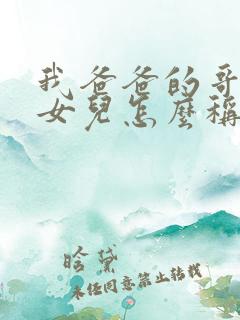 我爸爸的哥
女兒怎麼稱
晗黛
未经同意禁止转载